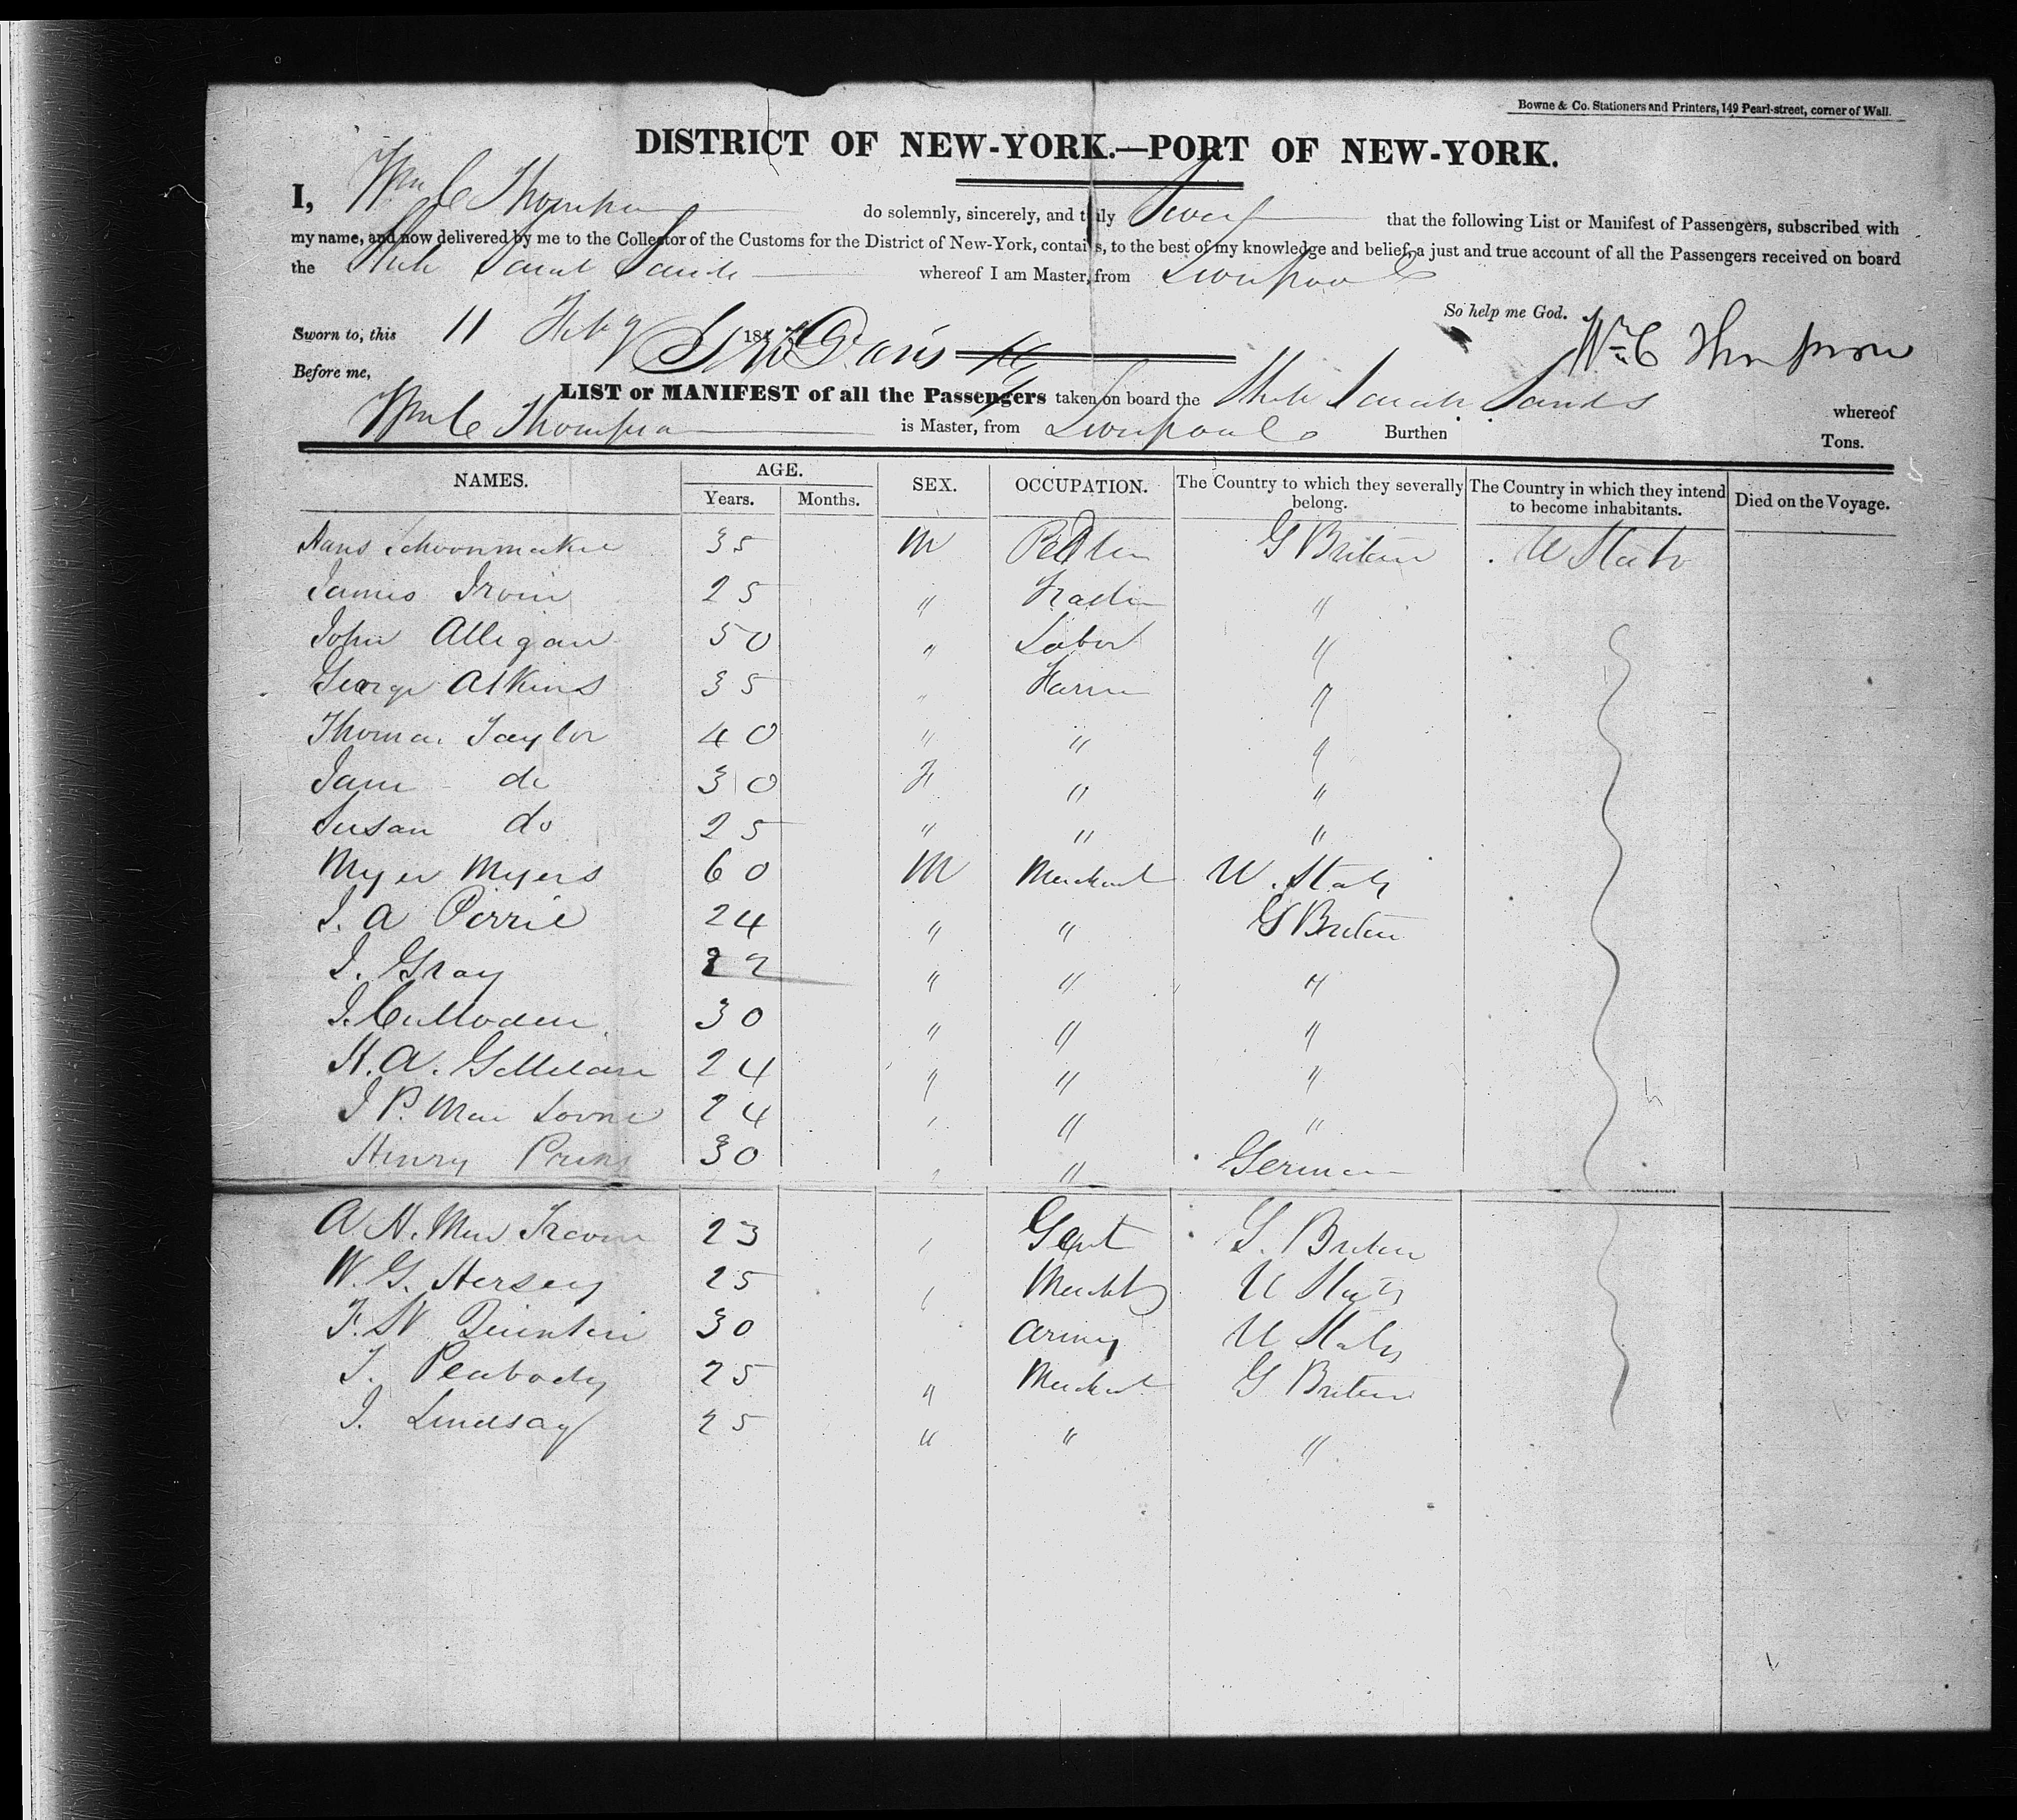 Bowne & Co. Stationers and Printers, 149 Pearl-street, corner of Wall.
DISTRICT OF NEW-YORK.—PORT OF NEW-YORK.
I, Wm C Thompson do solemnly, sincerely, and truly Swear that the following List or Manifest of Passengers, subscribed with
my name, and now delivered by me to the Collector of the Customs for the District of New-York, contains, to the best of my knowledge and belief, a just and true account of all the Passengers received on board
the Ship Sarah Sands whereof I am Master, from Liverpool
So help me God.
Sworn to, this 11 Feby 184 Wm C Thompson
Before me,
LIST or MANIFEST of all the Passengers taken on board the Ship Sarah Sands whereof
Wm C Thompson is Master, from Liverpool Burthen Tons.
NAMES. AGE. SEX. OCCUPATION. The Country to which they severally belong. The Country in which they intend to become inhabitants. Died on the Voyage.
Years. Months.
Hans Schoonmaker 35 M G Britain U States
James Irvin 25 " "
John Alligan 50 " Labor "
George Atkins 35 " Farmer "
Thomas Taylor 40 " " "
Jane do 30 F " "
Susan do 25 " " "
Myer Myers 60 M Merchant U. States
J. A Pirrie 24 " " G Britain
J. Gray 22 " " "
J. Culloden 30 " " "
H. A. 24 " " "
J P. 24 " " "
Henry 30 " " German
A. H. 23 " Gent G. Britain
W. G. Hersey 25 " Mercht U States
F. W Quinten 30 Army U States
J. Peabody 25 " Merchant G Britain
J. Lindsay 25 " " "